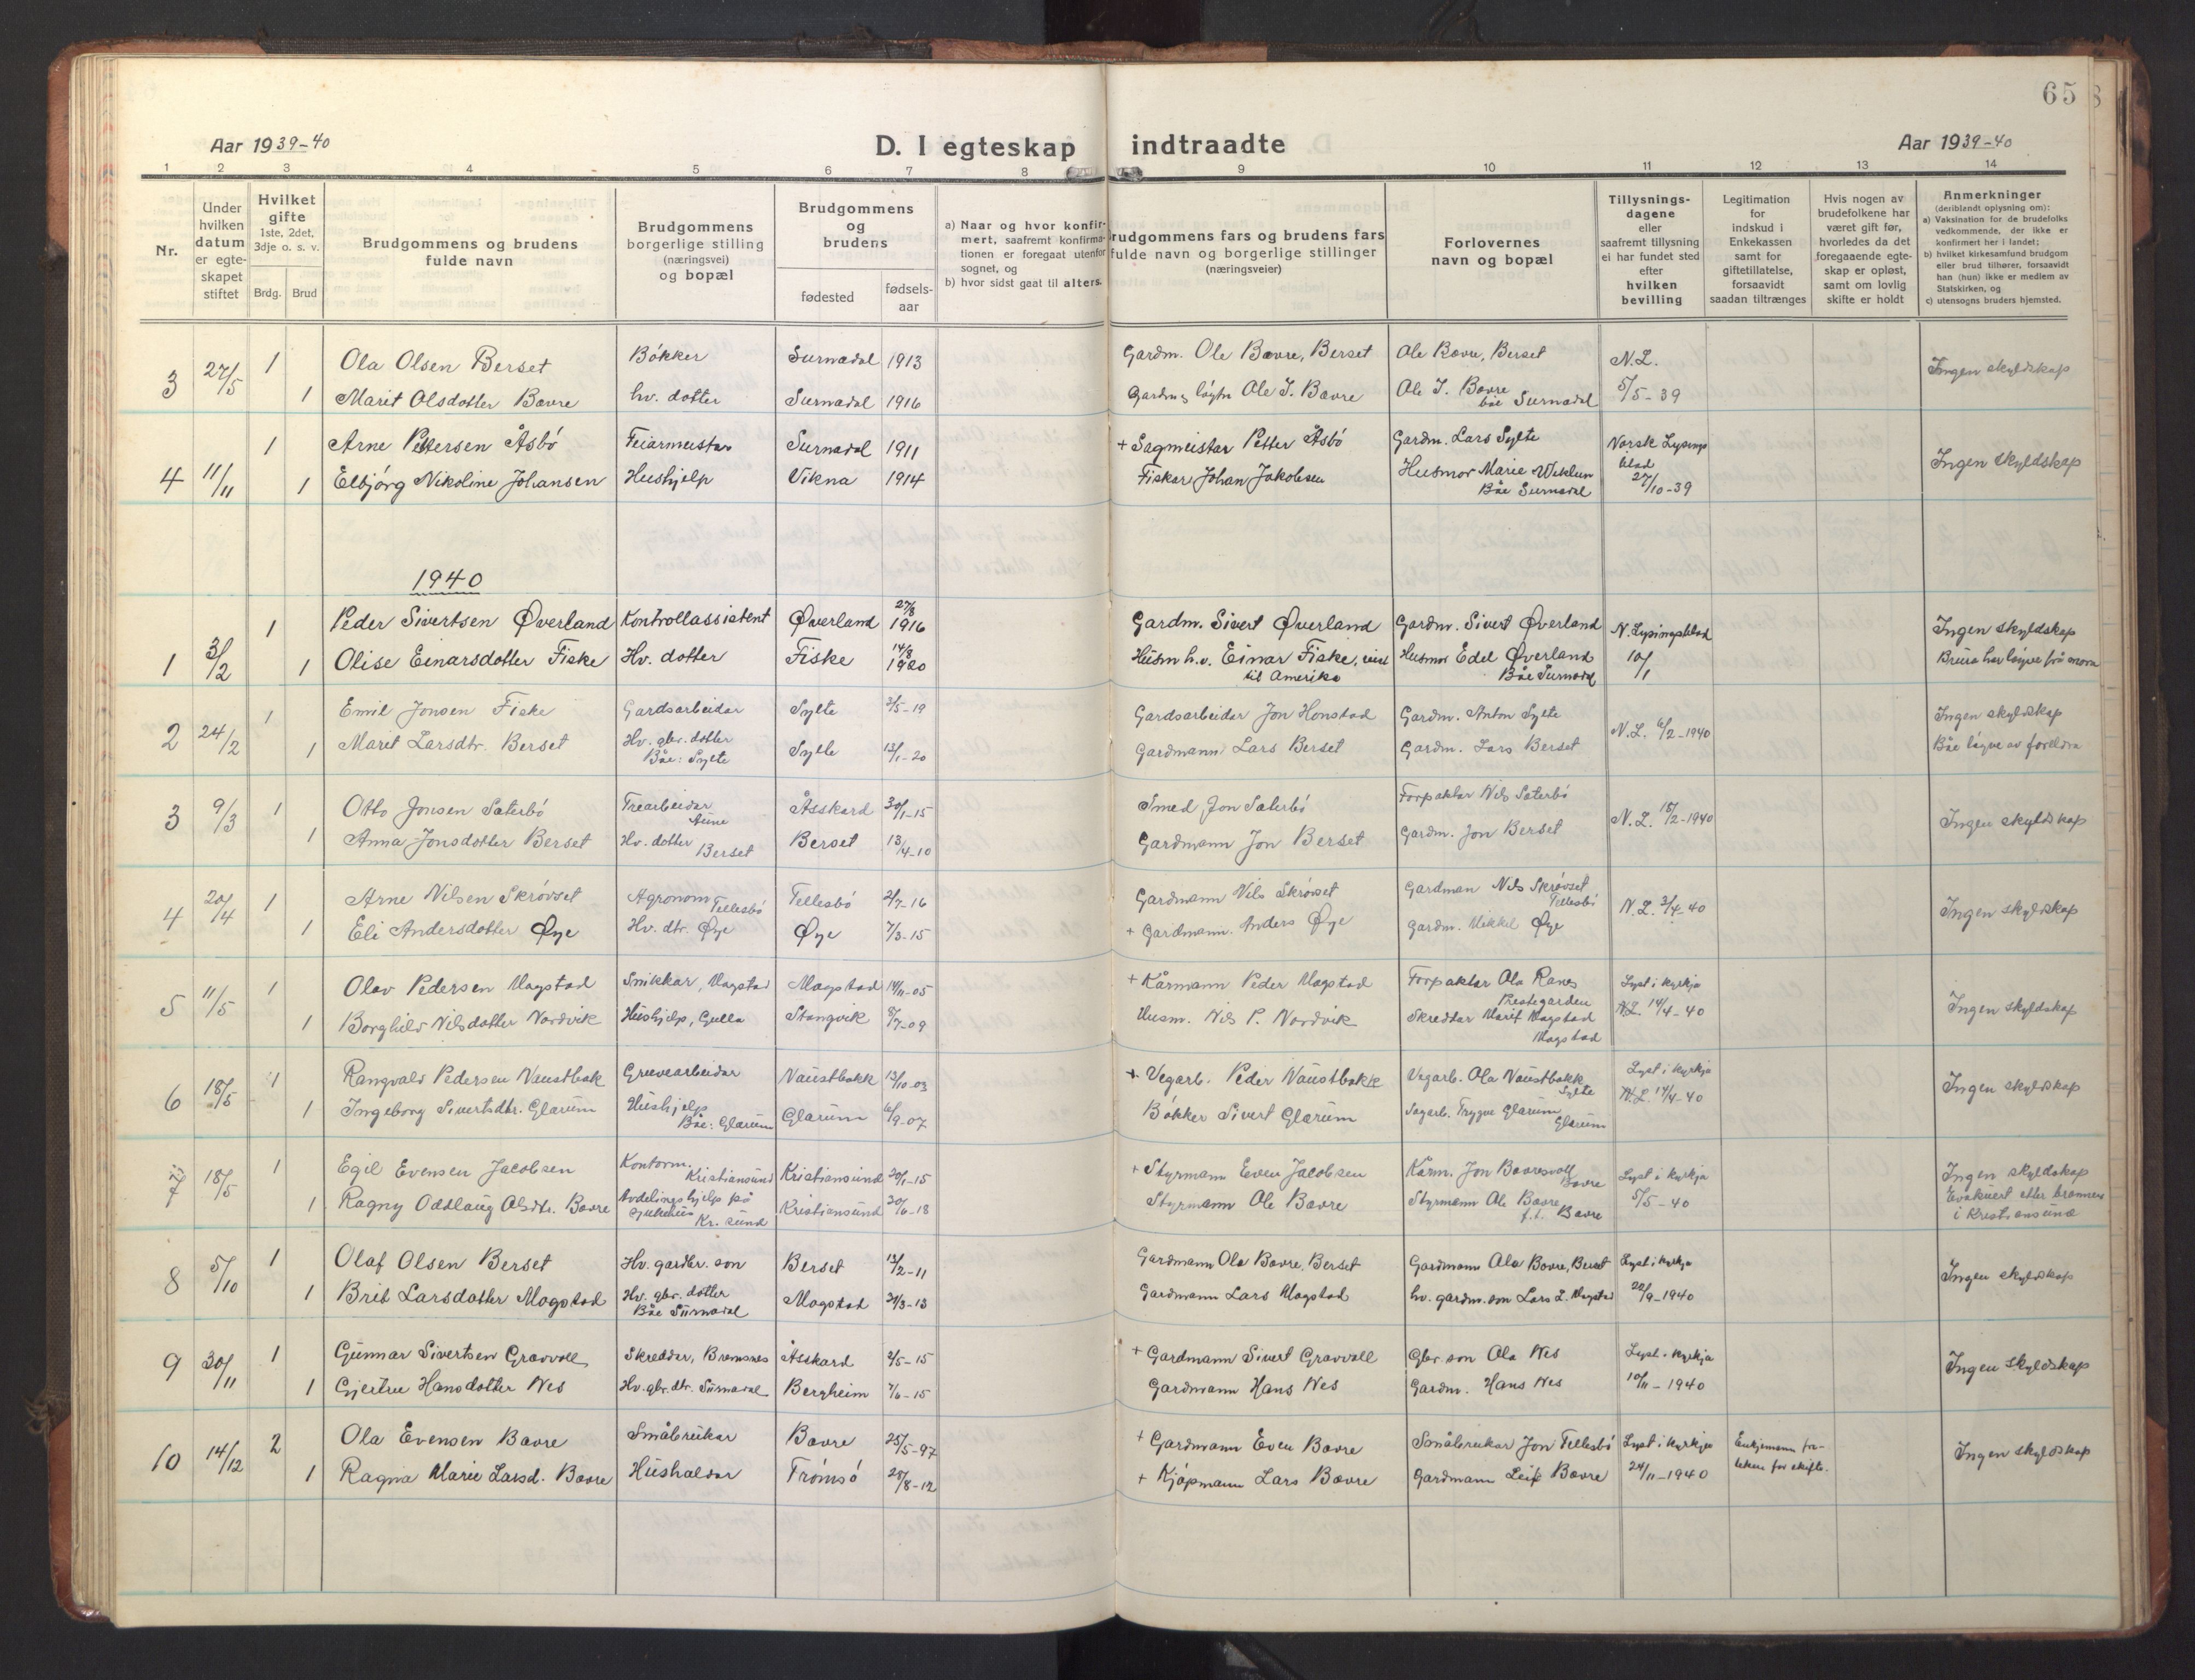 65
Aar 1939-40
D. I egteskap indtraadte
Aar 1939-40
1 2 3 4 5 6 7 8 9 10 11 12 13 14
Nr.
Under hvilken datum er egte-skapet stiftet
Hvilket gifte 1ste, 2det, 3dje o. s. v.
Brdg. Brud
Brudgommens og brudens fulde navn
Brudgommens borgerlige stilling (næringsvei) og bopæl
Brudgommens og brudens
fødested
fødsels-aar
a) Naar og hvor konfir-mert, saafremt konfirma-tionen er foregaat utenfor sognet, og
b) hvor sidst gaat til alters.
Brudgommens fars og brudens fars fulde navn og borgerlige stillinger (næringsveier)
Forlovernes navn og bopæl
Tillysnings-dagene eller saafremt tillysning ei har fundet sted efter hvilken bevilling
Legitimation for indskud i Enkekassen samt for giftetillatelse, forsaavidt saadan tiltrænges
Hvis nogen av brudefolkene har været gift før, hvorledes da det foregaaende egte-skap er opløst, samt om lovlig skifte er holdt
Anmerkninger (deriblandt oplysning om):
a) Vaksination for de brudefolks vedkommende, der ikke er konfirmert her i landet;
b) hvilket kirkesamfund brudgom eller brud tilhører, forsaavidt han (hun) ikke er medlem av Statskirken, og
c) utensogns bruders hjemsted.
3 27/5 1 Ola Olsen Berset Bókker Surnadal 1913 Gardm. Ole Bævre, Berset Ole Bævre, Berset N.L. Ingen skyldskap
1 Marit Olsdotter Bævre hv. dotter Surnadal 1916 Ole J. Bævre Ole J. Bævre
báe Surnadal 5/5-39
4 11/11 1 Arne Pettersen Åsbó Feiarmeistar Surnadal 1911 + Sagmeistar Petter Åsbó Gardm. Lars Sylte Norsk Lysings
blad Ingen skyldskap
1 Elbjórg Nikoline Johansen Hushjelp Vikna 1914 Fiskar Johan Jakobsen Husmor Marie Wiklum
Báe Surnadal 27/10-39
1940
1 3/2 1 Peder Sivertsen Øverland Kontrollassistent Øverland 27/8 1916 Gardm. Sivert Øverland Gardm. Sivert Øverland N. Lysingsblad Ingen skyldskap
1 Olise Einarsdotter Fiske Hv. dotter Fiske 14/8 1920 Husm h.v. Einar Fiske, reist
til Amerika Husmor Edel Øverland
Báe Surnadal 10/1 Brura har lóyve frå mora
2 24/2 1 Emil Jonsen Fiske Gardsarbeidar Sylte 2/5-19 Gardsarbeidar Jon Honstad Gardm. Anton Sylte N.L. 6/2-1940 Ingen skyldskap
1 Marit Larsdtr. Berset Hv. gbr. dotter
Báe: Sylte Sylte 13/1-20 Gardmann Lars Berset Gardm. Lars Berset Báe lóyve av foreldra
3 9/3 1 Otto Jonsen Sæterbó Trearbeidar
Aune Åsskard 30/1-15 Smed Jon Sæterbó Forpaktar Nils Sæterbó N.L. 15/2-1940 Ingen skyldskap
1 Anna Jonsdotter Berset Hv. dotter
Berset Berset 13/4-10 Gardmann Jon Berset Gardm. Jon Berset
4 20/4 1 Arne Nilsen Skróvset Agronom
Tellesbó Tellesbó 2/7-16 Gardmann Nils Skróvset Gardman Nils Skróvset
Tellesbó N.L. 3/4-40 Ingen skyldskap
1 Eli Andersdotter Øye Hv. dtr. Øye Øye 7/3-15 + Gardmann Anders Øye Gardm. Mikkel Øye
5 11/5 1 Olav Pedersen Mogstad Snikkar, Mogstad Mogstad 14/11-05 + Kårmann Peder Mogstad Forpaktar Ola Ranes
Prestegarden Lyst i kyrkja Ingen skyldskap
1 Borghild Nilsdotter Nordvik Hushjelp, Gulla Stangvik 8/7-09 Husm. Nils P. Nordvik Skreddar Marit Mogstad
Mogstad N.L. 14/4-40
6 18/5 1 Rangvald Pedersen Naustbak Gruvearbeidar Naustbakk 13/10-03 + Vegarb. Peder Naustbakk Vegarb. Ola Naustbakk
Sylte Lyst i kyrkja Ingen skyldskap
1 Ingeborg Sivertsdtr. Glærum Hushjelp
Báe: Glærum Glærum 6/9-07 Bókker Sivert Glærum Sagarb. Trygve Glærum
Glærum N.L. 14/4-40
7 18/5 1 Egil Evensen Jacobsen Kontorm.
Kristiansund Kristiansund 20/1-15 + Styrmann Even Jacobsen Kårm. Jon Bævresvoll
Bævre Lyst i kyrkja Ingen skyldskap
1 Ragny Oddlaug Olsdtr. Bævre Avdelingshjelp på
sjukehus
Kr. sund Kristiansund 30/6-18 Styrmann Ole Bævre Styrmann Ole Bævre
f.t. Bævre 5/5-40 Evakuert etter brannen
i Kristiansund
8 5/10 1 Olaf Olsen Berset Hv. gardbr. son Berset 13/2-11 Gardmann Ola Bævre, Berset Gardmann Ola Bævre, Berset Lyst i kyrkja Ingen skyldskap
1 Brit Larsdotter Mogstad Hv. gbr. dotter
Báe Surnadal Mogstad 24/3-13 Gardmann Lars Mogstad hv. gardm. son Lars L. Mogstad 22/9-1940
9 30/11 1 Gunnar Sivertsen Gravvoll Skreddar, Bremsnes Åsskard 2/5-15 + Gardmann Sivert Gravvoll Gbr. son Ola Nes Lyst i kyrkja Ingen skyldskap
1 Gjertru Hansdotter Nes Hv. gbr. dtr. Surnadal Bergheim 7/6-15 Gardmann Hans Nes Gardm. Hans Nes 10/11-1940
10 14/12 2 Ola Evensen Bævre Småbrukar Bævre 25/5-97 + Gardmann Even Bævre Småbrukar Jon Tellesbó Lyst i kyrkja Enkjemann Ingen skyldskap
1 Ragna Marie Larsd. Bævre Hushaldar Tromsó 28/8-12 + Kjópmann Lars Bævre Gardmann Leif Bævre 24/11-1940 for skifte.